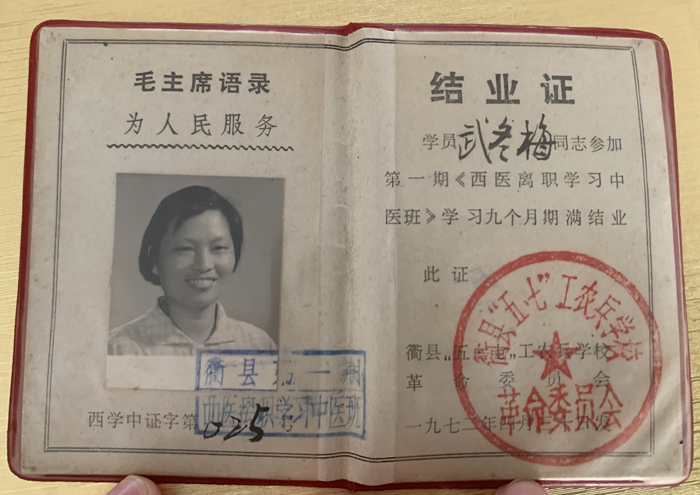 毛主席语录
为人民服务
衢县第一期
西医离职学习中医班
西学中证字第025号
结业证
学员武冬梅同志参加
第一期《西医离职学习中
医班》学习九个月期满结业
此证
衢县“五七”工农兵学校
革命委员会
一九七二年四月二十四日发
衢县“五七”工农兵学校
革命委员会